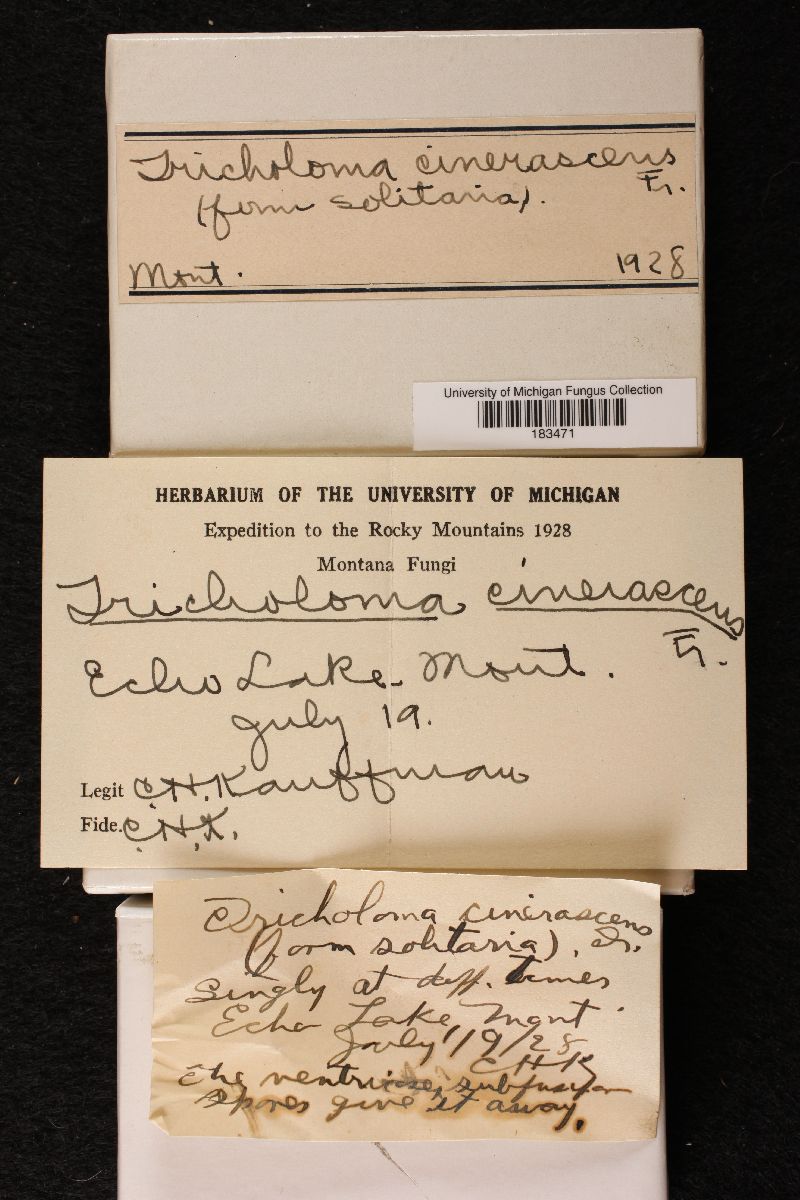 Tricholoma cinerascens
Fr.
(form solitaria).
Mont. 1928
University of Michigan Fungus Collection
183471
HERBARIUM OF THE UNIVERSITY OF MICHIGAN
Expedition to the Rocky Mountains 1928
Montana Fungi
Tricholoma cinerascens
Fr.
Echo Lake. Mont.
July 19.
Legit C.H. Kauffman
Fide. C.H.K.
Tricholoma cinerascens
(form solitaria), Fr.
Singly at diff. times
Echo Lake, Mont.
July 19/28
CHK
The ventricose, subfusiform
spores give it away.